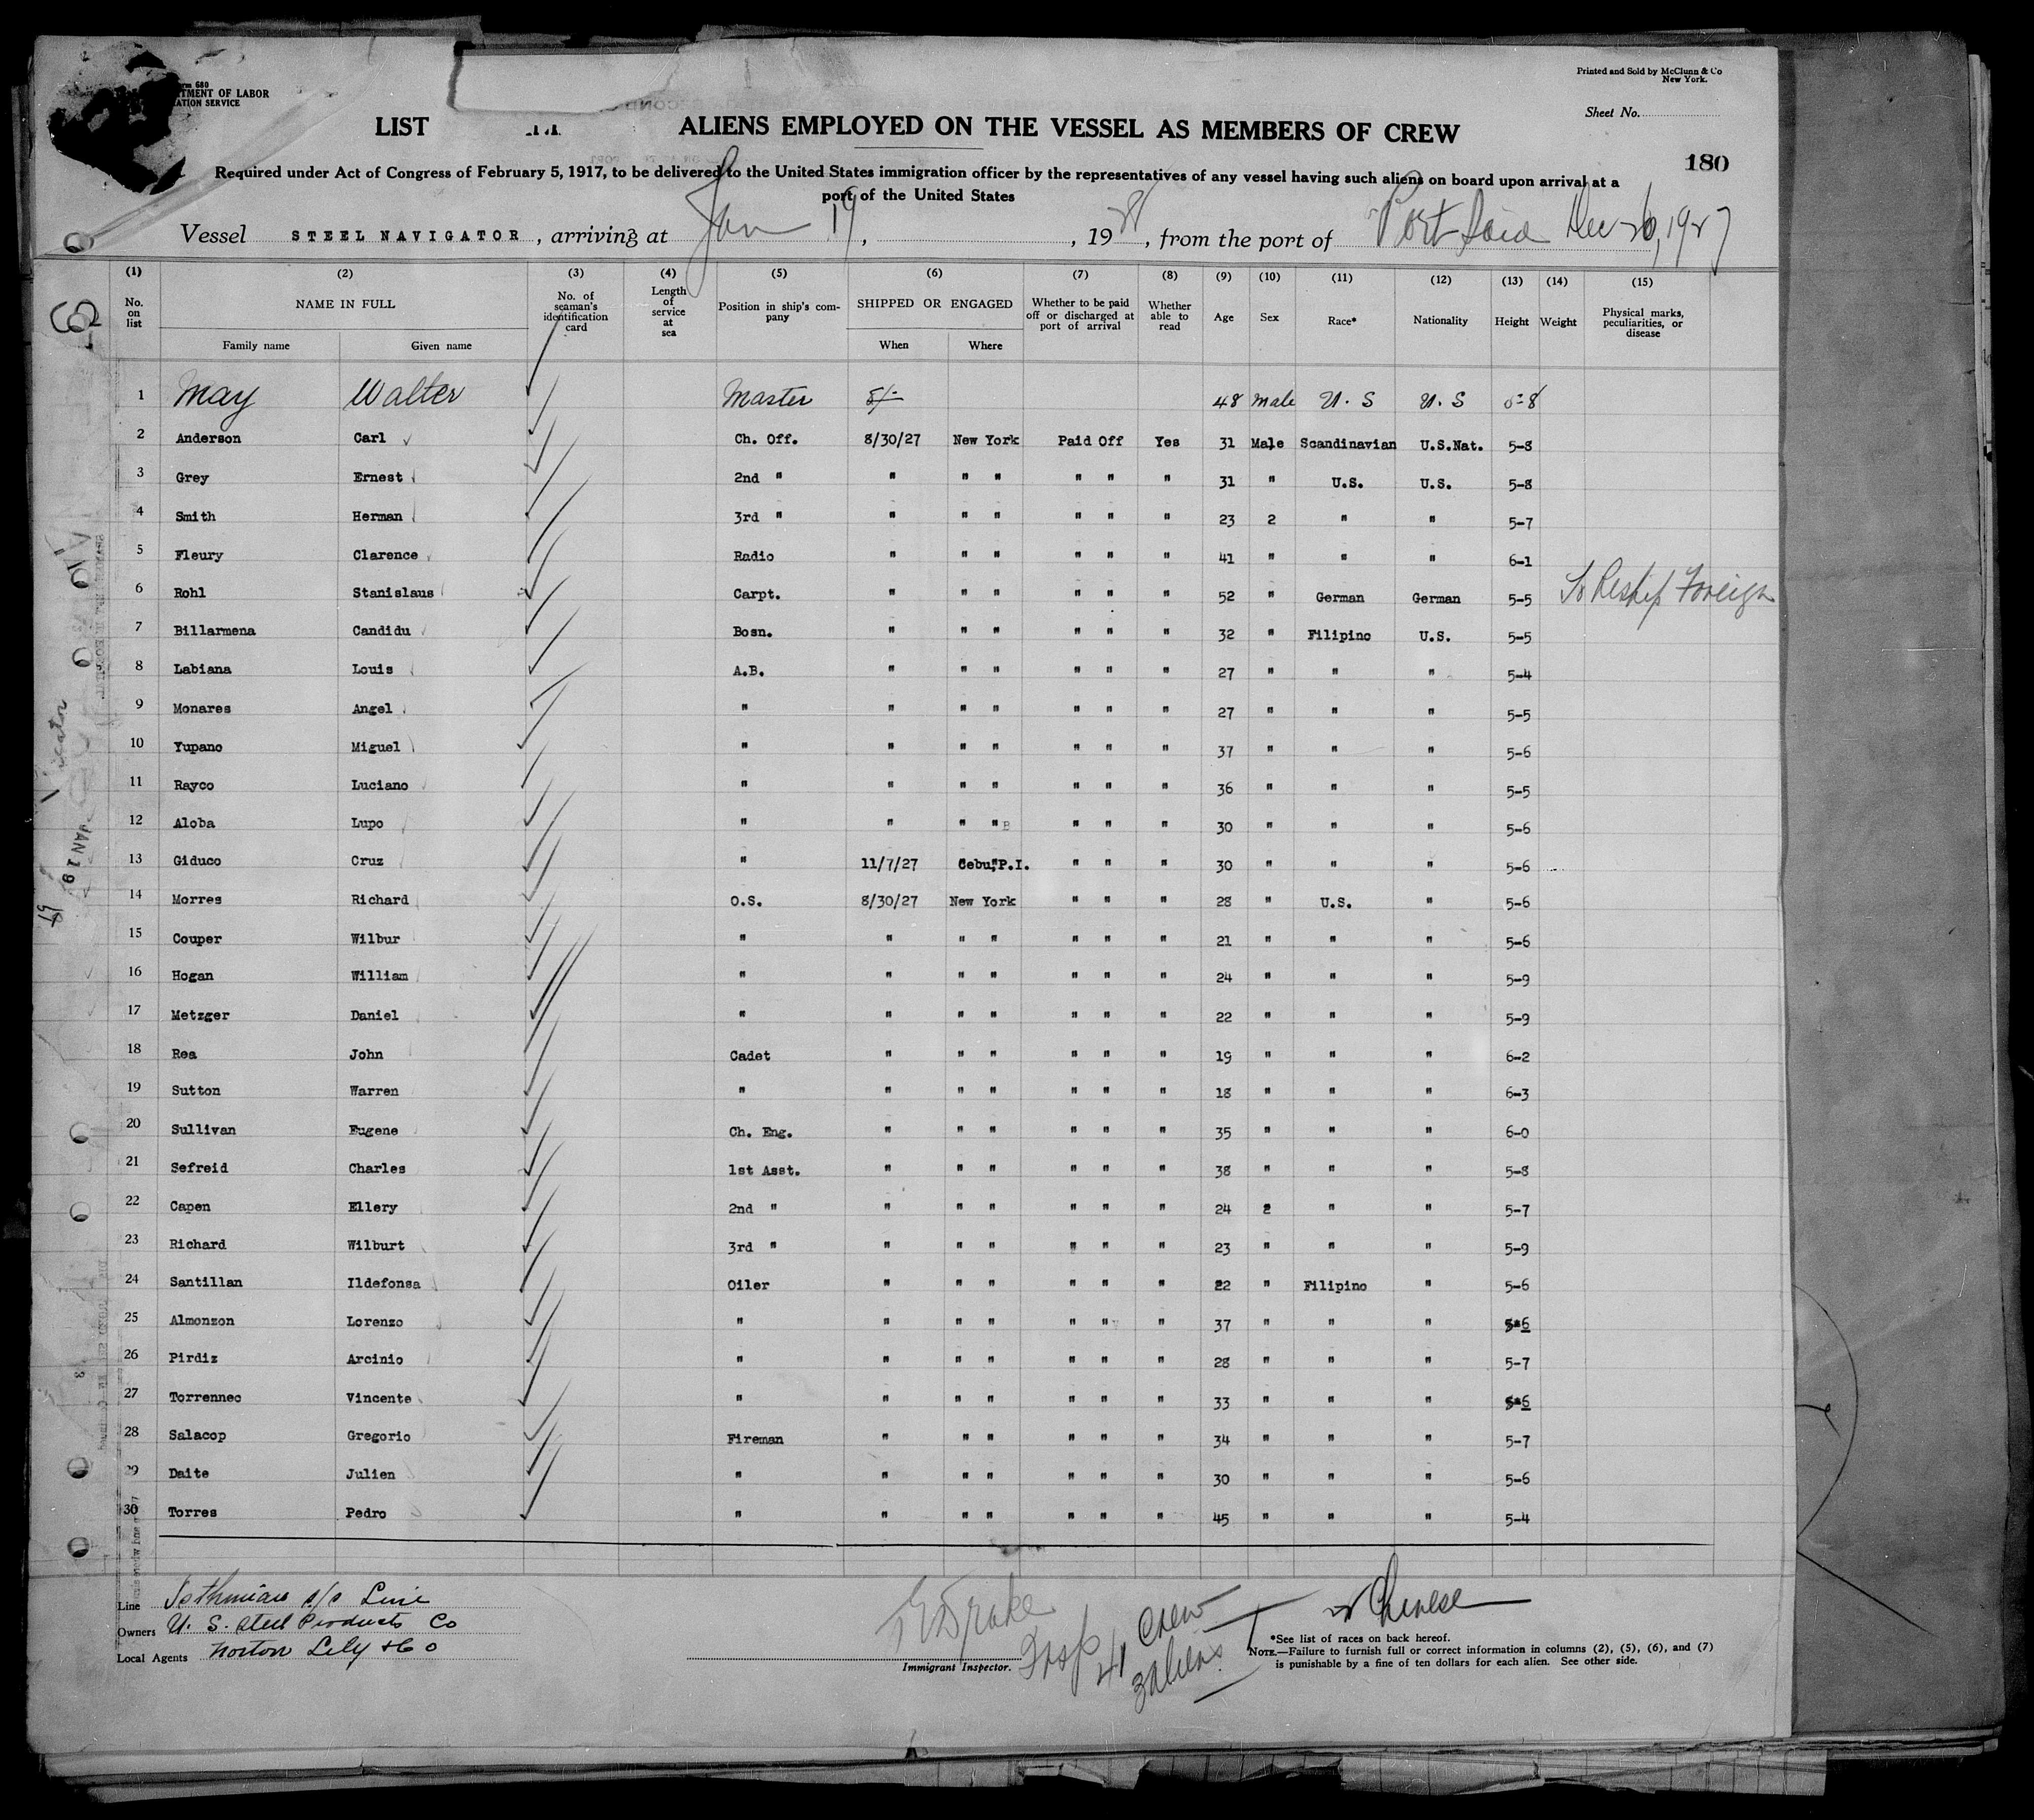 rm 680
TMENT OF LABOR
ATION SERVICE
Printed and Sold by McClunn & Co
New York.
Sheet No.
LIST ALIENS EMPLOYED ON THE VESSEL AS MEMBERS OF CREW
180
Required under Act of Congress of February 5, 1917, to be delivered to the United States immigration officer by the representatives of any vessel having such aliens on board upon arrival at a
port of the United States
Vessel STEEL NAVIGATOR, arriving at Jan 19, , 1928, from the port of Port Said Dec 26, 1927
(1) (2) (3) (4) (5) (6) (7) (8) (9) (10) (11) (12) (13) (14) (15)
No. on list NAME IN FULL No. of seaman's identification card Length of service at sea Position in ship's company SHIPPED OR ENGAGED Whether to be paid off or discharged at port of arrival Whether able to read Age Sex Race* Nationality Height Weight Physical marks, peculiarities, or disease
Family name Given name When Where
1 May Walter Master 48 Male U.S U.S 5-8
2 Anderson Carl Ch. Off. 8/30/27 New York Paid Off Yes 31 Male Scandinavian U.S.Nat. 5-8
3 Grey Ernest 2nd " " " " " " " 31 " U.S. U.S. 5-8
4 Smith Herman 3rd " " " " " " " 23 2 " " 5-7
5 Fleury Clarence Radio " " " " " " 41 " " " 6-1
6 Rohl Stanislaus Carpt. " " " " " " 52 " German German 5-5 To Reship Foreign
7 Billarmena Candidu Bosn. " " " " " " 32 " Filipino U.S. 5-5
8 Labiana Louis A.B. " " " " " " 27 " " " 5-4
9 Monares Angel " " " " " " " 27 " " " 5-5
10 Yupano Miguel " " " " " " " 37 " " " 5-6
11 Rayco Luciano " " " " " " " 36 " " " 5-5
12 Aloba Lupo " " " " " " " 30 " " " 5-6
13 Giduco Cruz " 11/7/27 Cebu,P.I. " " " 30 " " " 5-6
14 Morres Richard O.S. 8/30/27 New York " " " 28 " U.S. " 5-6
15 Couper Wilbur " " " " " " " 21 " " " 5-6
16 Hogan William " " " " " " " 24 " " " 5-9
17 Metzger Daniel " " " " " " " 22 " " " 5-9
18 Rea John Cadet " " " " " " 19 " " " 6-2
19 Sutton Warren " " " " " " " 18 " " " 6-3
20 Sullivan Eugene Ch. Eng. " " " " " " 35 " " " 6-0
21 Sefreid Charles 1st Asst. " " " " " " 38 " " " 5-8
22 Capen Ellery 2nd " " " " " " " 24 2 " " 5-7
23 Richard Wilburt 3rd " " " " " " " 23 " " " 5-9
24 Santillan Ildefonsa Oiler " " " " " " 22 " Filipino " 5-6
25 Almonzon Lorenzo " " " " " " " 37 " " " 5-6
26 Pirdiz Arcinio " " " " " " " 28 " " " 5-7
27 Torrennec Vincente " " " " " " " 33 " " " 5-6
28 Salacop Gregorio Fireman " " " " " " 34 " " " 5-7
29 Daite Julien " " " " " " " 30 " " " 5-6
30 Torres Pedro " " " " " " " 45 " " " 5-4
Line Isthmian s/s Line
Owners U. S. Steel Products Co
Local Agents Norton Lily & Co
Drake
Insp
Immigrant Inspector.
41 Crew
3 aliens
Chinese
*See list of races on back hereof.
NOTE.—Failure to furnish full or correct information in columns (2), (5), (6), and (7)
is punishable by a fine of ten dollars for each alien. See other side.
JAN 19